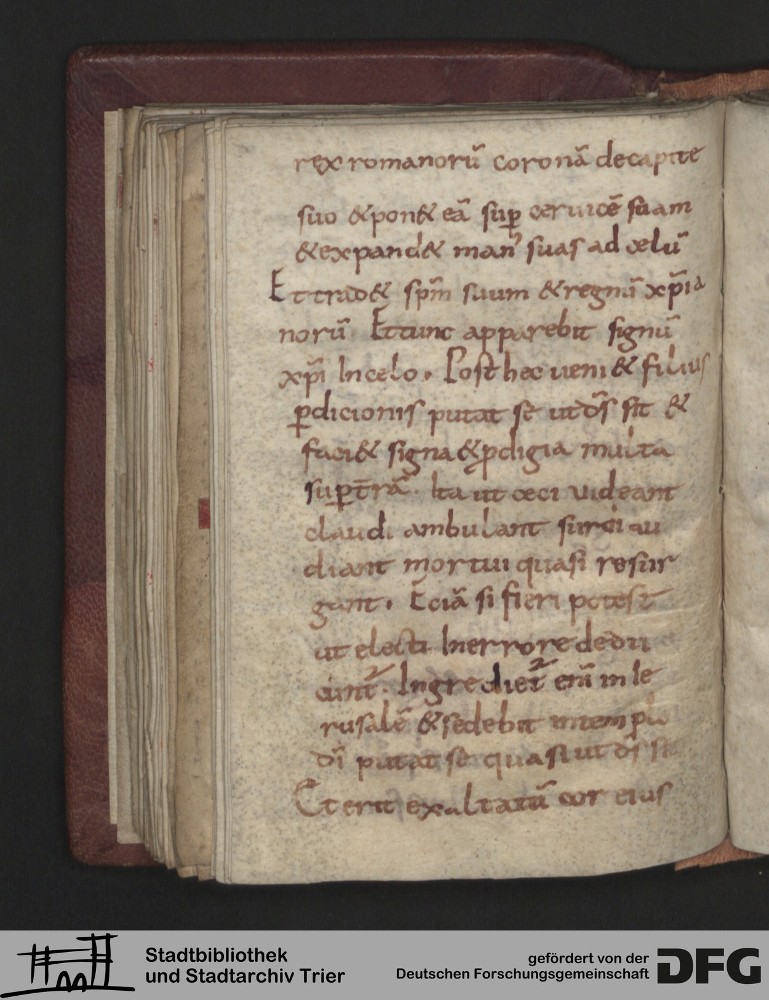 rex romanorū coronā decapite
suo &pon& eā sup̱ ceruicē suam
&expand& man᾽ suas ad celū
Et trad& sp̄m suum &regnū xp̄ia
norū Et tunc apparebit signū
xp̄i In celo. Post hec ueni& filius
p̱dicionis putat se ut dr̄s sit &
faci& signa &p̱digia multa
sup̱ t̄rā. Ita ut ceci uideant
claudi ambulant surdi au
diant mortui quasi resur
gant. Eciā si fieri potest
ut electi Inerrore dedu
cunt᾽. Ingrediet᾽ eni᷄ in Ie
rusalē &sedebit intemplo
dī putat se quasi ut d̄s sit
Et erit exaltatū cor eius
Stadtbibliothek
und Stadtarchiv Trier
gefördert von der
Deutschen Forschungsgemeinschaft
DFG